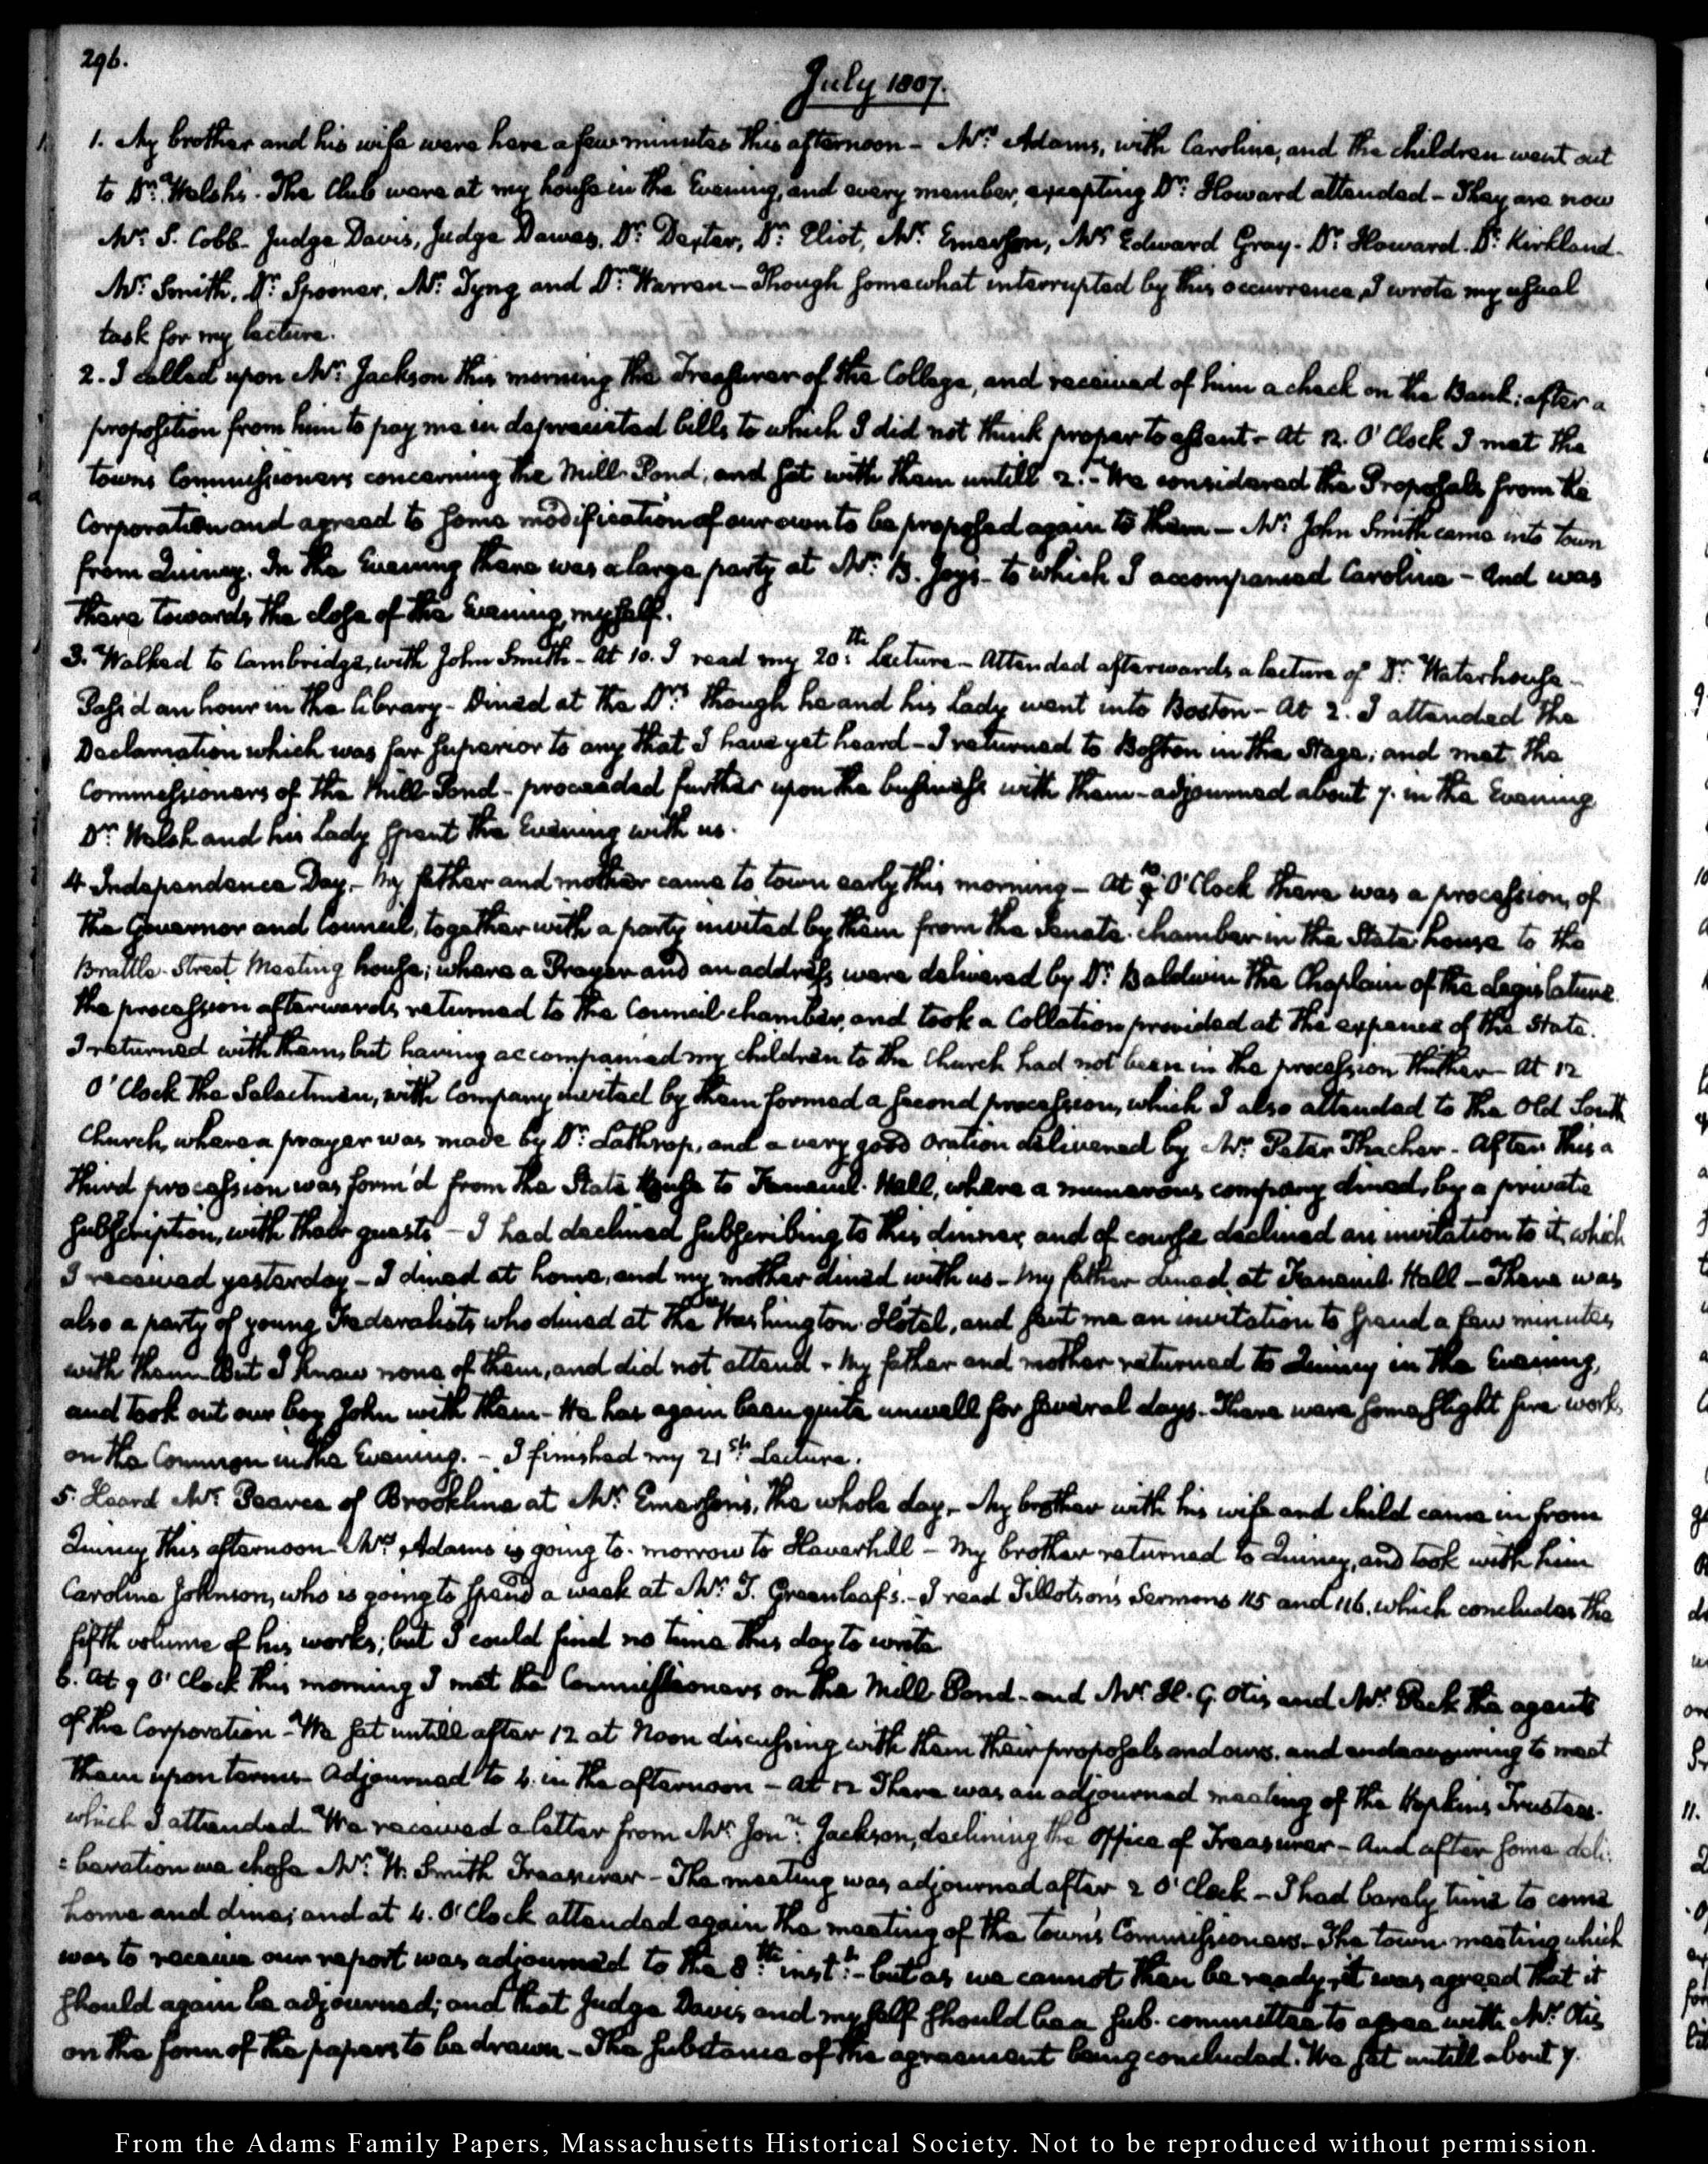 296.
July 1807.
1. My brother and his wife were here a few minutes this afternoon — Mrs. Adams, with Caroline, and the children went out
to Dr. Welsh's. The Club were at my house in the Evening, and every member, excepting Dr. Howard attended — They are now
Mr. S. Cobb. Judge Davis, Judge Dawes, Dr. Dexter, Dr. Eliot, Mr. Emerson, Mr. Edward Gray. Dr. Howard. Dr. Kirkland.
Mr. Smith, Dr. Spooner, Mr. Tyng and Dr. Warren — Though somewhat interrupted by this occurrence, I wrote my usual
task for my lecture.
2. I called upon Mr. Jackson this morning the Treasurer of the College, and received of him a check on the Bank; after a
proposition from him to pay me in depreciated bills to which I did not think proper to assent — At 12. O'Clock I met the
towns Commissioners concerning the Mill-Pond, and sat with them untill 2. — We considered the Proposals from the
Corporation and agreed to some modification of our own to be proposed again to them — Mr. John Smith came into town
from Quincy. In the Evening there was a large party at Mr. B. Joy's — to which I accompanied Caroline — And was
there towards the close of the Evening, myself.
3. Walked to Cambridge, with John Smith — At 10. I read my 20th. Lecture — Attended afterwards a lecture of Dr. Waterhouse —
Pass'd an hour in the library — Dined at the Drs. though he and his Lady went into Boston — At 2. I attended the
Declamation which was far superior to any that I have yet heard — I returned to Boston in the Stage; and met the
Commissioners of the Mill-Pond — proceeded further upon the business with them — adjourned about 7. in the Evening
Dr. Welsh and his Lady spent the Evening with us.
4 Independence Day. — My father and mother came to town early this morning — At 10 O'Clock there was a procession, of
the Governor and Council, together with a party invited by them from the Senate-chamber in the State house to the
Brattle-Street Meeting house; where a Prayer and an address were delivered by Dr. Baldwin the Chaplain of the Legislature.
the procession afterwards returned to the Council-chamber, and took a Collation provided at the expence of the State.
I returned with them, but having accompanied my children to the Church had not been in the procession thither — At 12
O'Clock the Selectmen, with Company invited by them formed a second procession, which I also attended to the Old South
Church, where a prayer was made by Dr. Lathrop, and a very good oration delivered by Mr. Peter Thacher. — After this a
third procession was form'd from the State house to Faneuil-Hall, where a numerous company dined, by a private
subscription, with their guests — I had declined subscribing to this dinner, and of course declined an invitation to it, which
I received yesterday — I dined at home, and my mother dined with us — My father dined at Faneuil-Hall — There was
also a party of young Federalists who dined at the Washington-Hotel, and sent me an invitation to spend a few minutes
with them — But I knew none of them, and did not attend — My father and mother returned to Quincy in the Evening,
and took out our boy John with them — He has again been quite unwell for several days. There were some slight fire works
on the Common in the Evening. — I finished my 21st. Lecture.
5. Heard Mr. Pearce of Brookline at Mr. Emerson's, the whole day. — My brother with his wife and child came in from
Quincy this afternoon. Mrs. Adams is going to-morrow to Haverhill — My brother returned to Quincy, and took with him
Caroline Johnson, who is going to spend a week at Mr. T. Greenleaf's. — I read Tillotson's Sermons 115 and 116. which concludes the
fifth volume of his works; but I could find no time this day to write.
6. At 9 O'Clock this morning I met the Commissioners on the Mill Pond — and Mr. H. G. Otis and Mr. Peck the agents
of the Corporation — We sat untill after 12 at Noon discussing with them their proposals and ours, and endeavouring to meet
them upon terms — Adjourned to 4. in the afternoon — At 12 There was an adjourned meeting of the Hopkins Trustees.
which I attended. We received a letter from Mr. Jonn. Jackson, declining the Office of Treasurer — And after some deli:
:beration we chose Mr. W. Smith Treasurer — The meeting was adjourned after 2 O'Clock — I had barely time to come
home and dine; and at 4. O'Clock attended again the meeting of the town's Commissioners. — The town-meeting which
was to receive our report was adjourned to the 8th. instt. — but as we cannot then be ready, it was agreed that it
should again be adjourned; and that Judge Davis and myself should be a sub-committee to agree with Mr. Otis
on the form of the papers to be drawn — The substance of the agreement being concluded. We sat untill about 7.
From the Adams Family Papers, Massachusetts Historical Society. Not to be reproduced without permission.